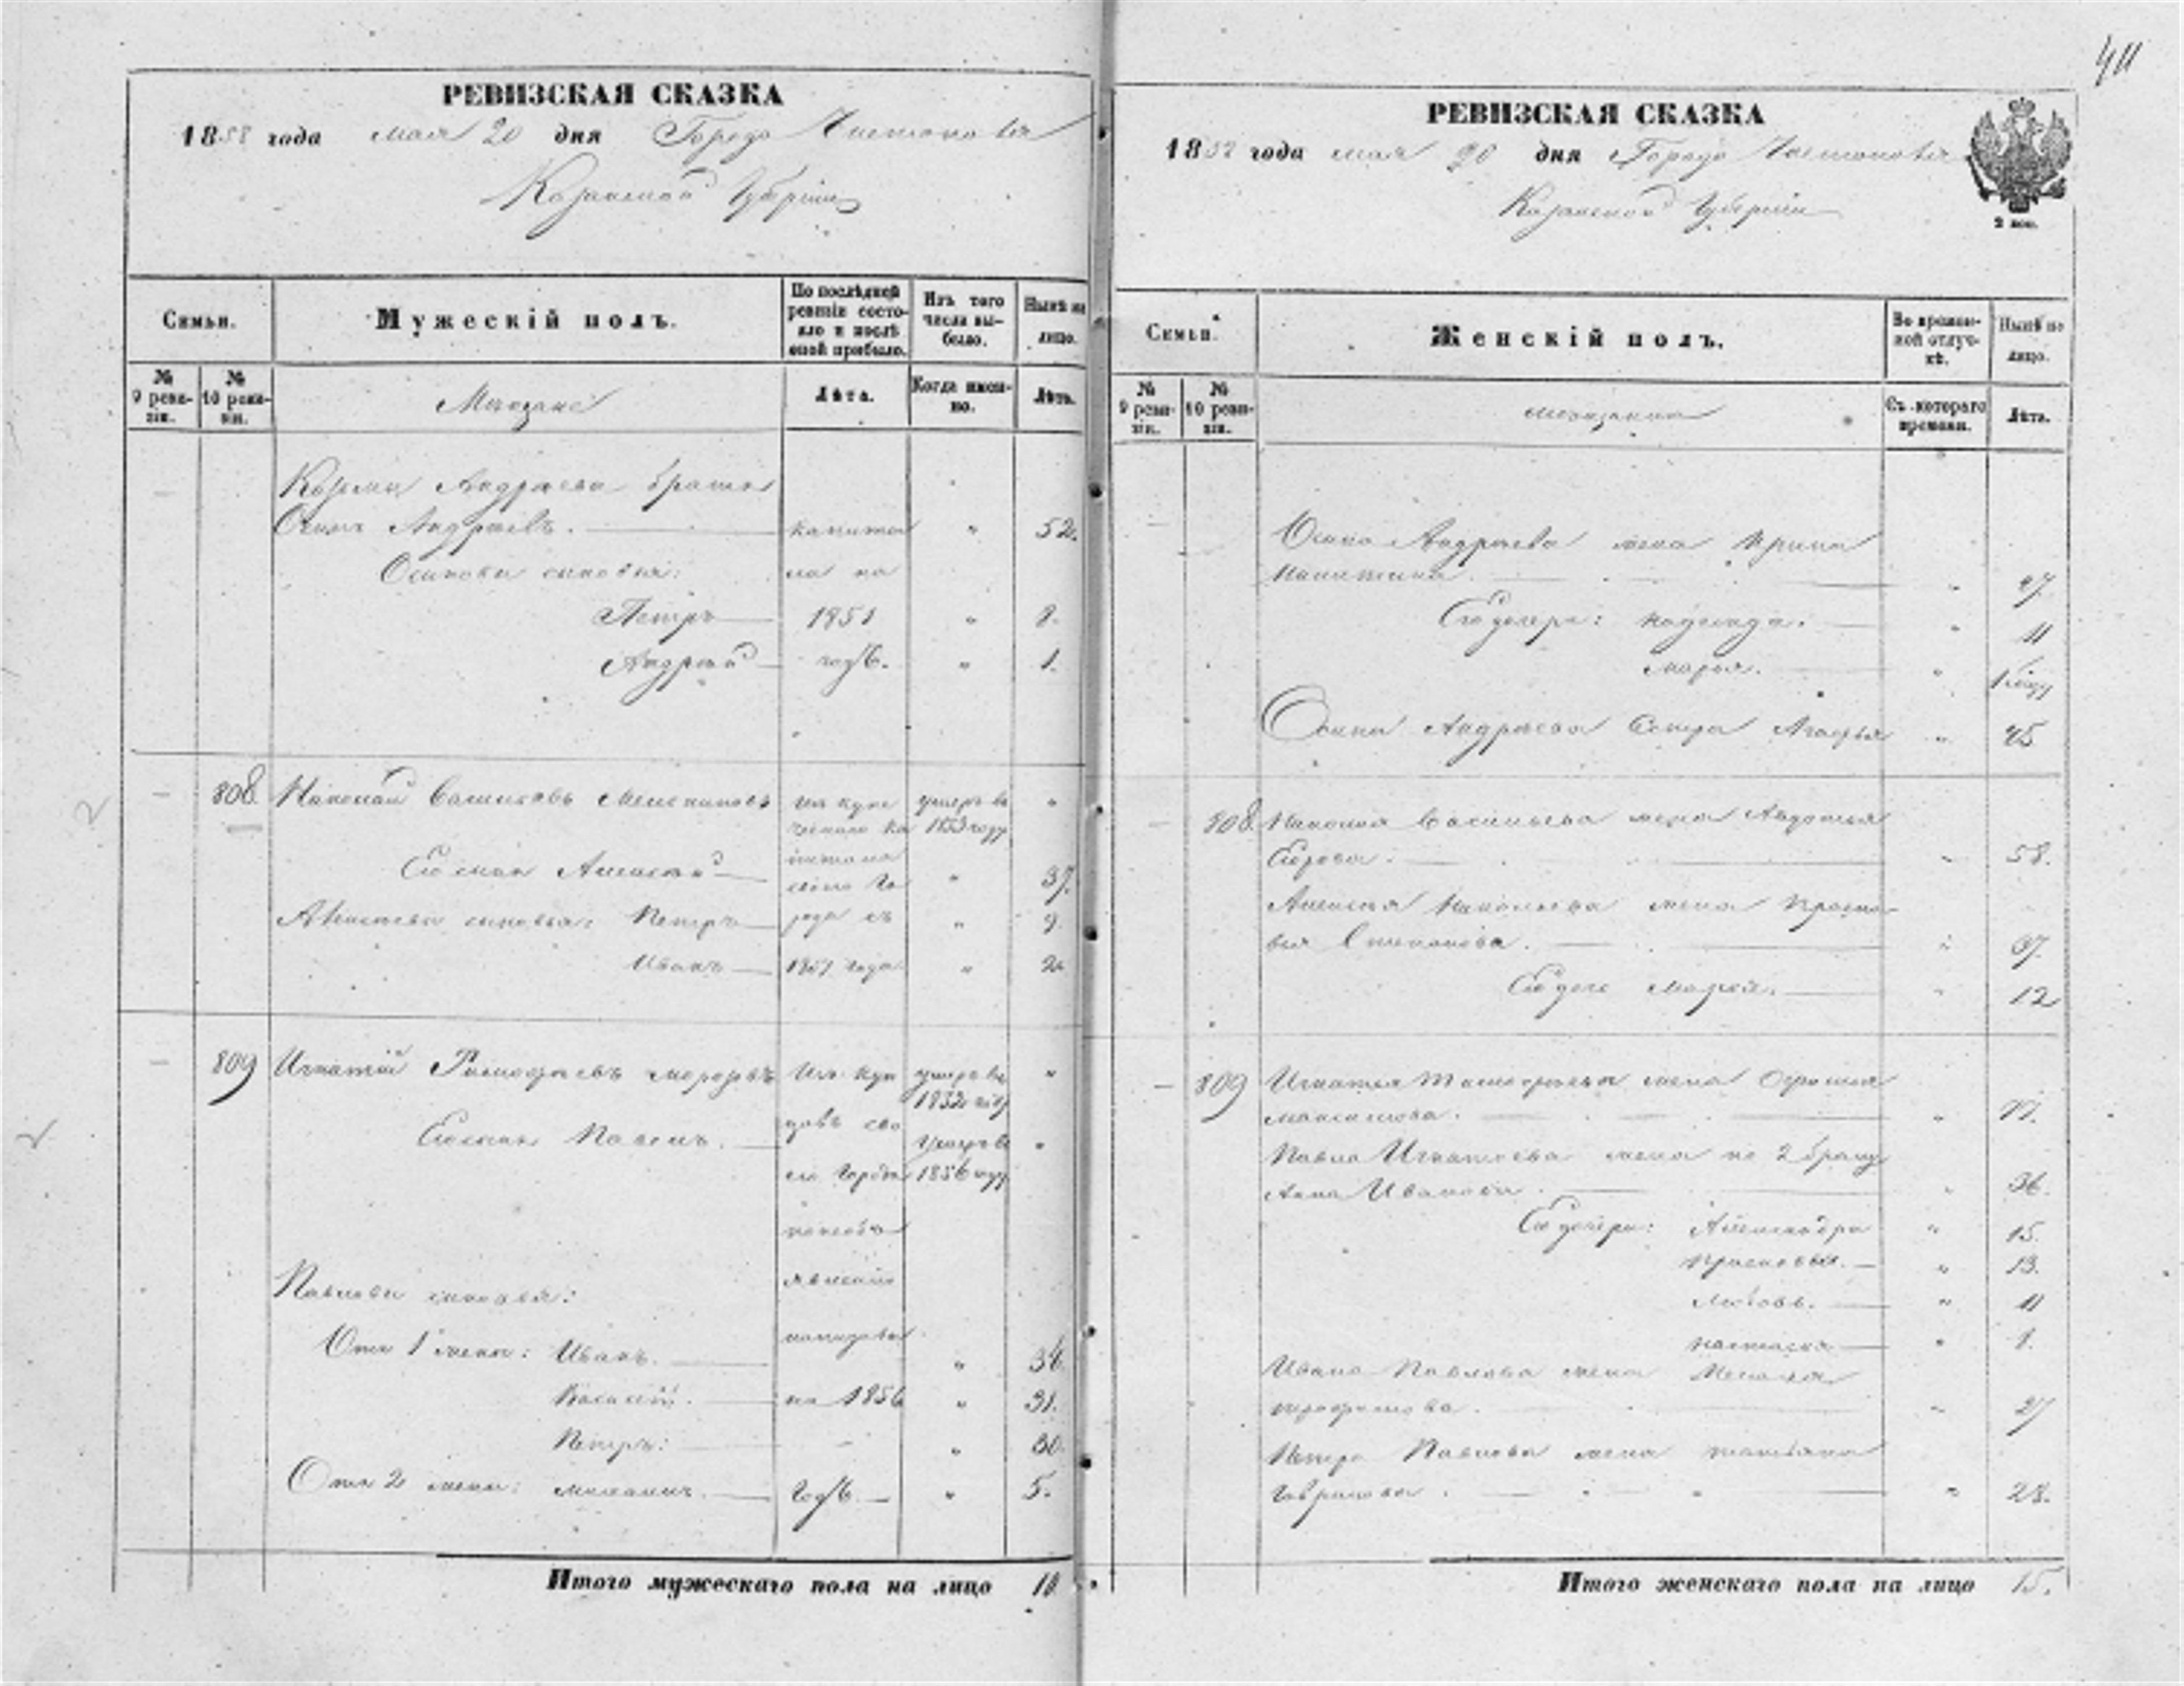 411
РЕВИЗСКАЯ СКАЗКА
1858 года мая 20 дня Города Чистополя
Казанской Губернии
Семьи.
Мужескій полъ.
По послѣдней ревизіи состояло и послѣ оной прибыло.
Изъ того числа выбыло.
Нынѣ на лицо.
№ 9 ревизіи.
№ 10 ревизіи.
Мещане
Лѣта.
Когда именно.
Лѣта.
Козьмы Андреева братъ
Осипъ Андреевъ. капита " 52.
Осиповы сыновья: ла на
Петръ 1851 "
Андрей годъ. " 1.
808. Николай Васильевъ из купе умеръ въ "
ческаго ка 1853 году
Его сынъ Алексей питала " 37.
сего го
Алексеевы сыновья: Петръ рода съ " 9.
Иванъ 1857 года " 2.
809 Игнатій Тимофеевъ Морозовъ Из куп умеръ въ "
1852 году
Его сынъ Павелъ. цовъ сво умеръ въ "
его города 1856 году
необъ
Павловы сыновья: явленію
Отъ 1 жены: Иванъ. капитала " 34.
Василій. на 1856 " 31.
Петръ: " 30.
Отъ 2 жены: годъ. " 5.
Итого мужескаго пола на лицо 10
РЕВИЗСКАЯ СКАЗКА
1858 года мая 20 дня Города Чистополя
Казанской Губерніи
2 коп.
Семьи.
Женскій полъ.
Во временной отлучкѣ.
Нынѣ на лицо.
№ 9 ревизіи.
№ 10 ревизіи.
Мещанки
Съ котораго времени.
Лѣта.
Осипа Андреева жена Ирина
Никитина. " 47.
Его дочери: Надежда. " 11
Марья. " 1 году
Осипа Андреева сестра Агафья " 45.
808. Николая Васильева жена Авдотья
" 58.
Алексея Николаева жена Праско
вья Степанова. " 37.
Его дочь Марья. " 12
809 Игнатья Тимофеева жена
Максимова. " 77.
Павла Игнатьева жена по 2 браку
Анна Иванова. " 36.
Его дочери: Александра " 15.
Прасковья. " 13.
Любовь. " 11
Настасья " 1.
Ивана Павлова жена
Трофимова. " 27
Петра Павлова жена Татьяна
Гаврилова. " 28.
Итого женскаго пола на лицо 15.